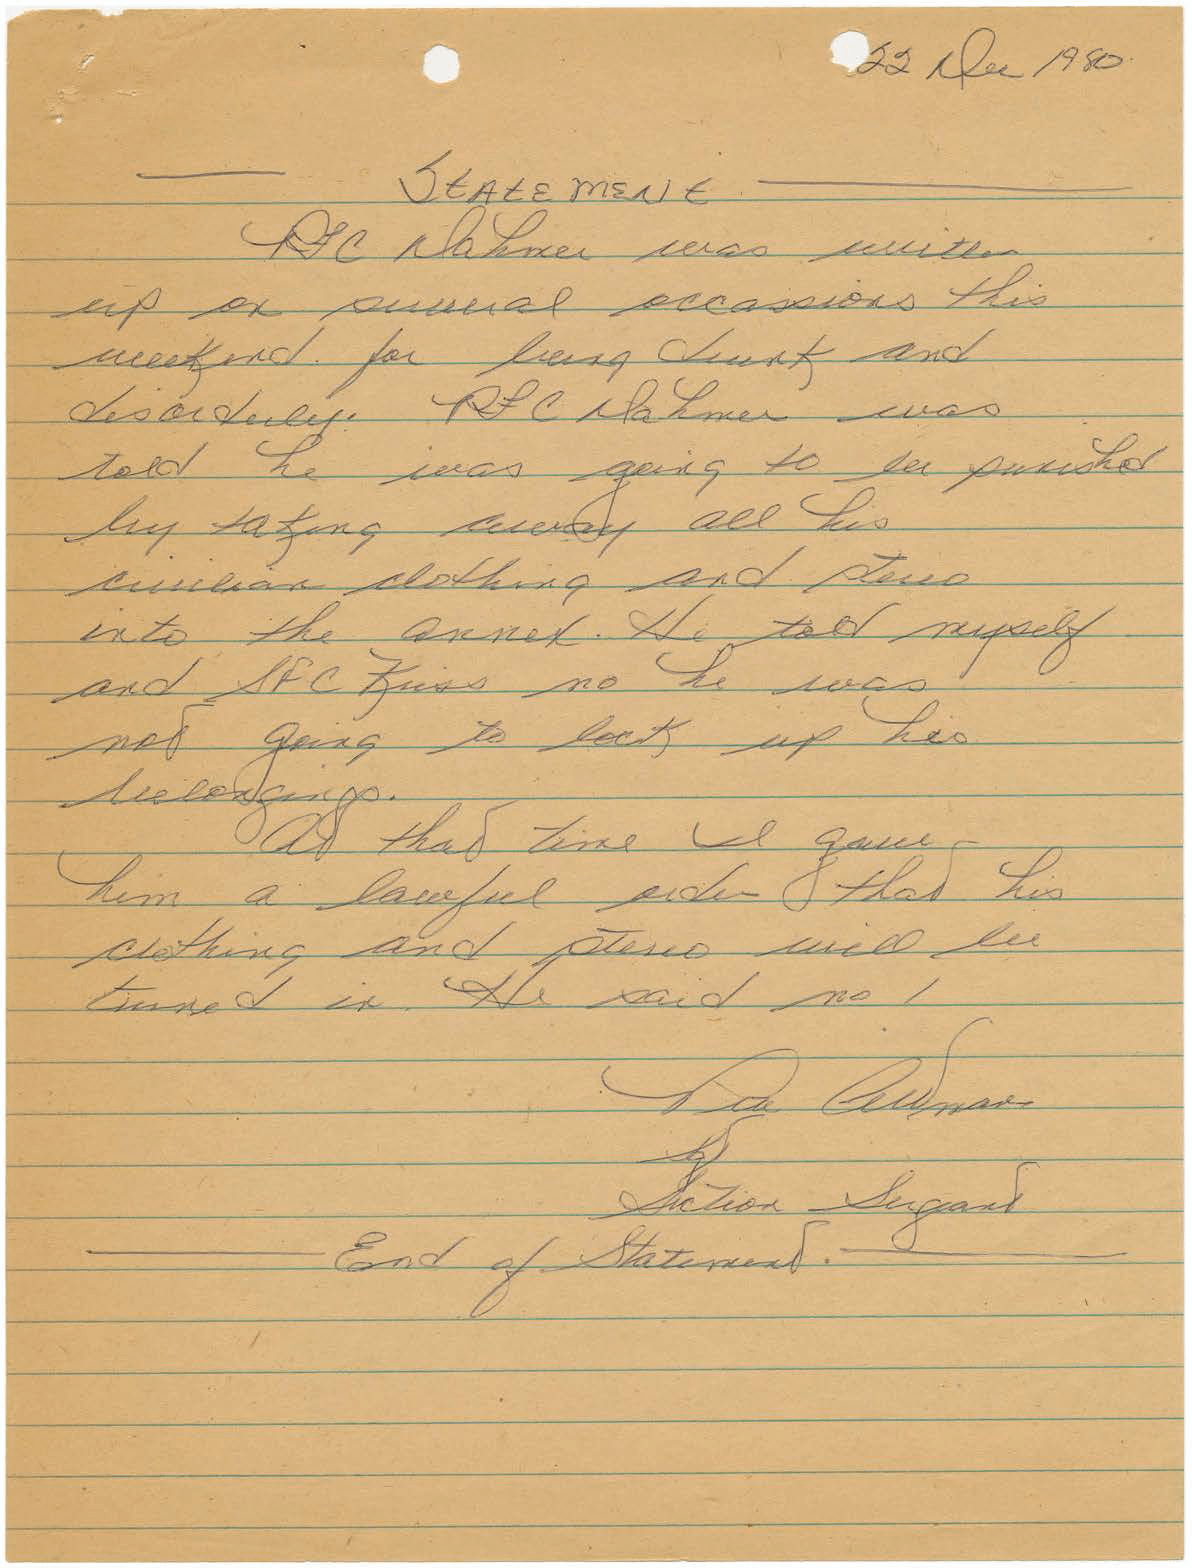 22 Dec 1980
STATEMENT
PFC Dahmer was written
up on several occassions this
weekend. for being drunk and
disorderly. PFC Dahmer was
told he was going to be punished
by taking away all his
civilian clothing and stereo
into the annex. He told myself
and SFC Kiss no he was
not going to lock up his
belongings.
At that time I gave
him a lawful order that his
clothing and stereo will be
turned in. He said no!
Section Sergeant
End of Statement.